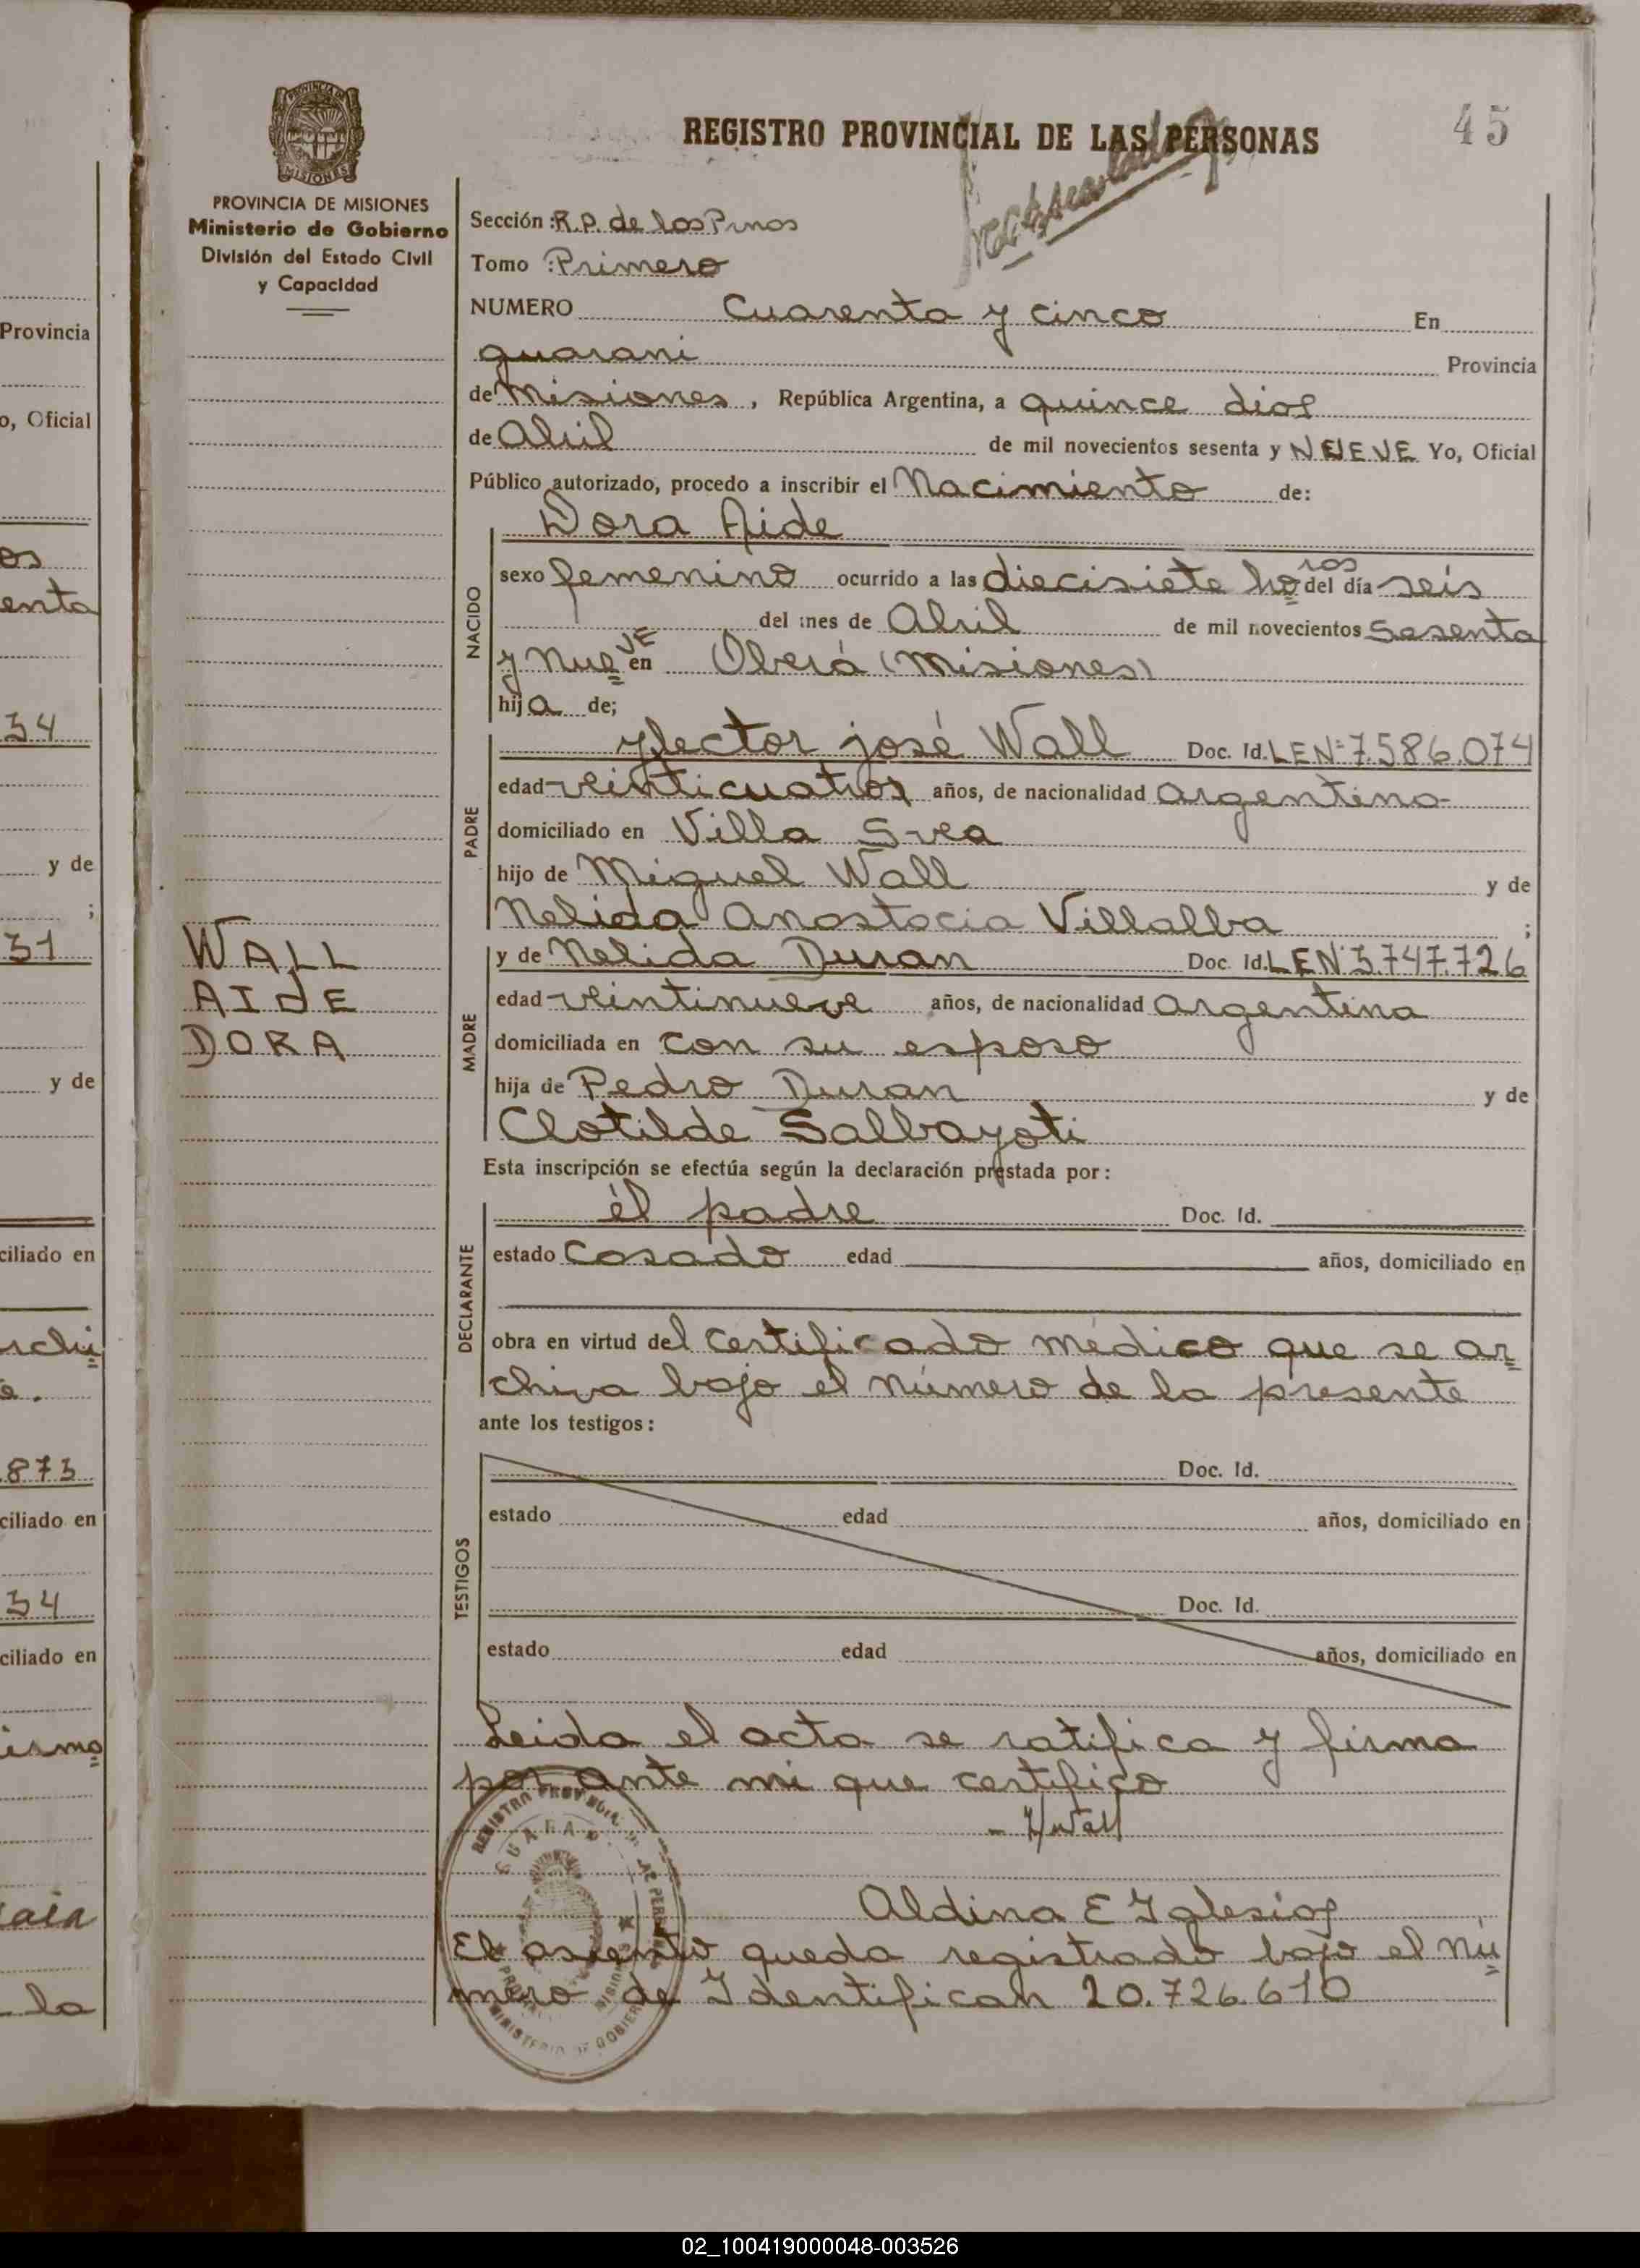 45
REGISTRO PROVINCIAL DE LAS PERSONAS
PROVINCIA DE MISIONES
Ministerio de Gobierno
División del Estado Civil
y Capacidad
Sección: R.P. de los Pinos
Tomo: Primero
NUMERO Cuarenta y cinco En
guarani Provincia
de Misiones, República Argentina, a quince dias
de Abril de mil novecientos sesenta y NUEVE Yo, Oficial
Público autorizado, procedo a inscribir el Nacimiento de:
Dora Aide
NACIDO
sexo femenino ocurrido a las diecisiete horas del día seis
del mes de Abril de mil novecientos Sesenta
y NueVE en Oberá (Misiones)
hija de;
PADRE
Hector josé Wall Doc. Id. LENº 7.586.074
edad veinticuatro años, de nacionalidad argentino
domiciliado en Villa Svea
hijo de Miguel Wall y de
Nelida Anastacia Villalba ;
WALL
AIdE
DORA
MADRE
y de Nelida Duran Doc. Id. LEN 3.747.726
edad veintinueve años, de nacionalidad argentina
domiciliada en con su esposo
hija de Pedro Duran y de
Clotilde Salbayoti
Esta inscripción se efectúa según la declaración prestada por:
DECLARANTE
él padre Doc. Id.
estado Casado edad años, domiciliado en
obra en virtud del certificado médico que se ar=
chiva bajo el número de la presente
ante los testigos:
TESTIGOS
Doc. Id.
estado edad años, domiciliado en
Doc. Id.
estado edad años, domiciliado en
Leida el acta se ratifica y firma
por ante mi que certifico
HWall
Aldina E Iglesias
El asiento queda registrado bajo el Nú=
mero de Identifican 20.726.610
Provincia
o, Oficial
os
enta
34
y de
;
31
y de
ciliado en
rchi=
e.
873
ciliado en
34
ciliado en
ismo
la
02_100419000048-003526